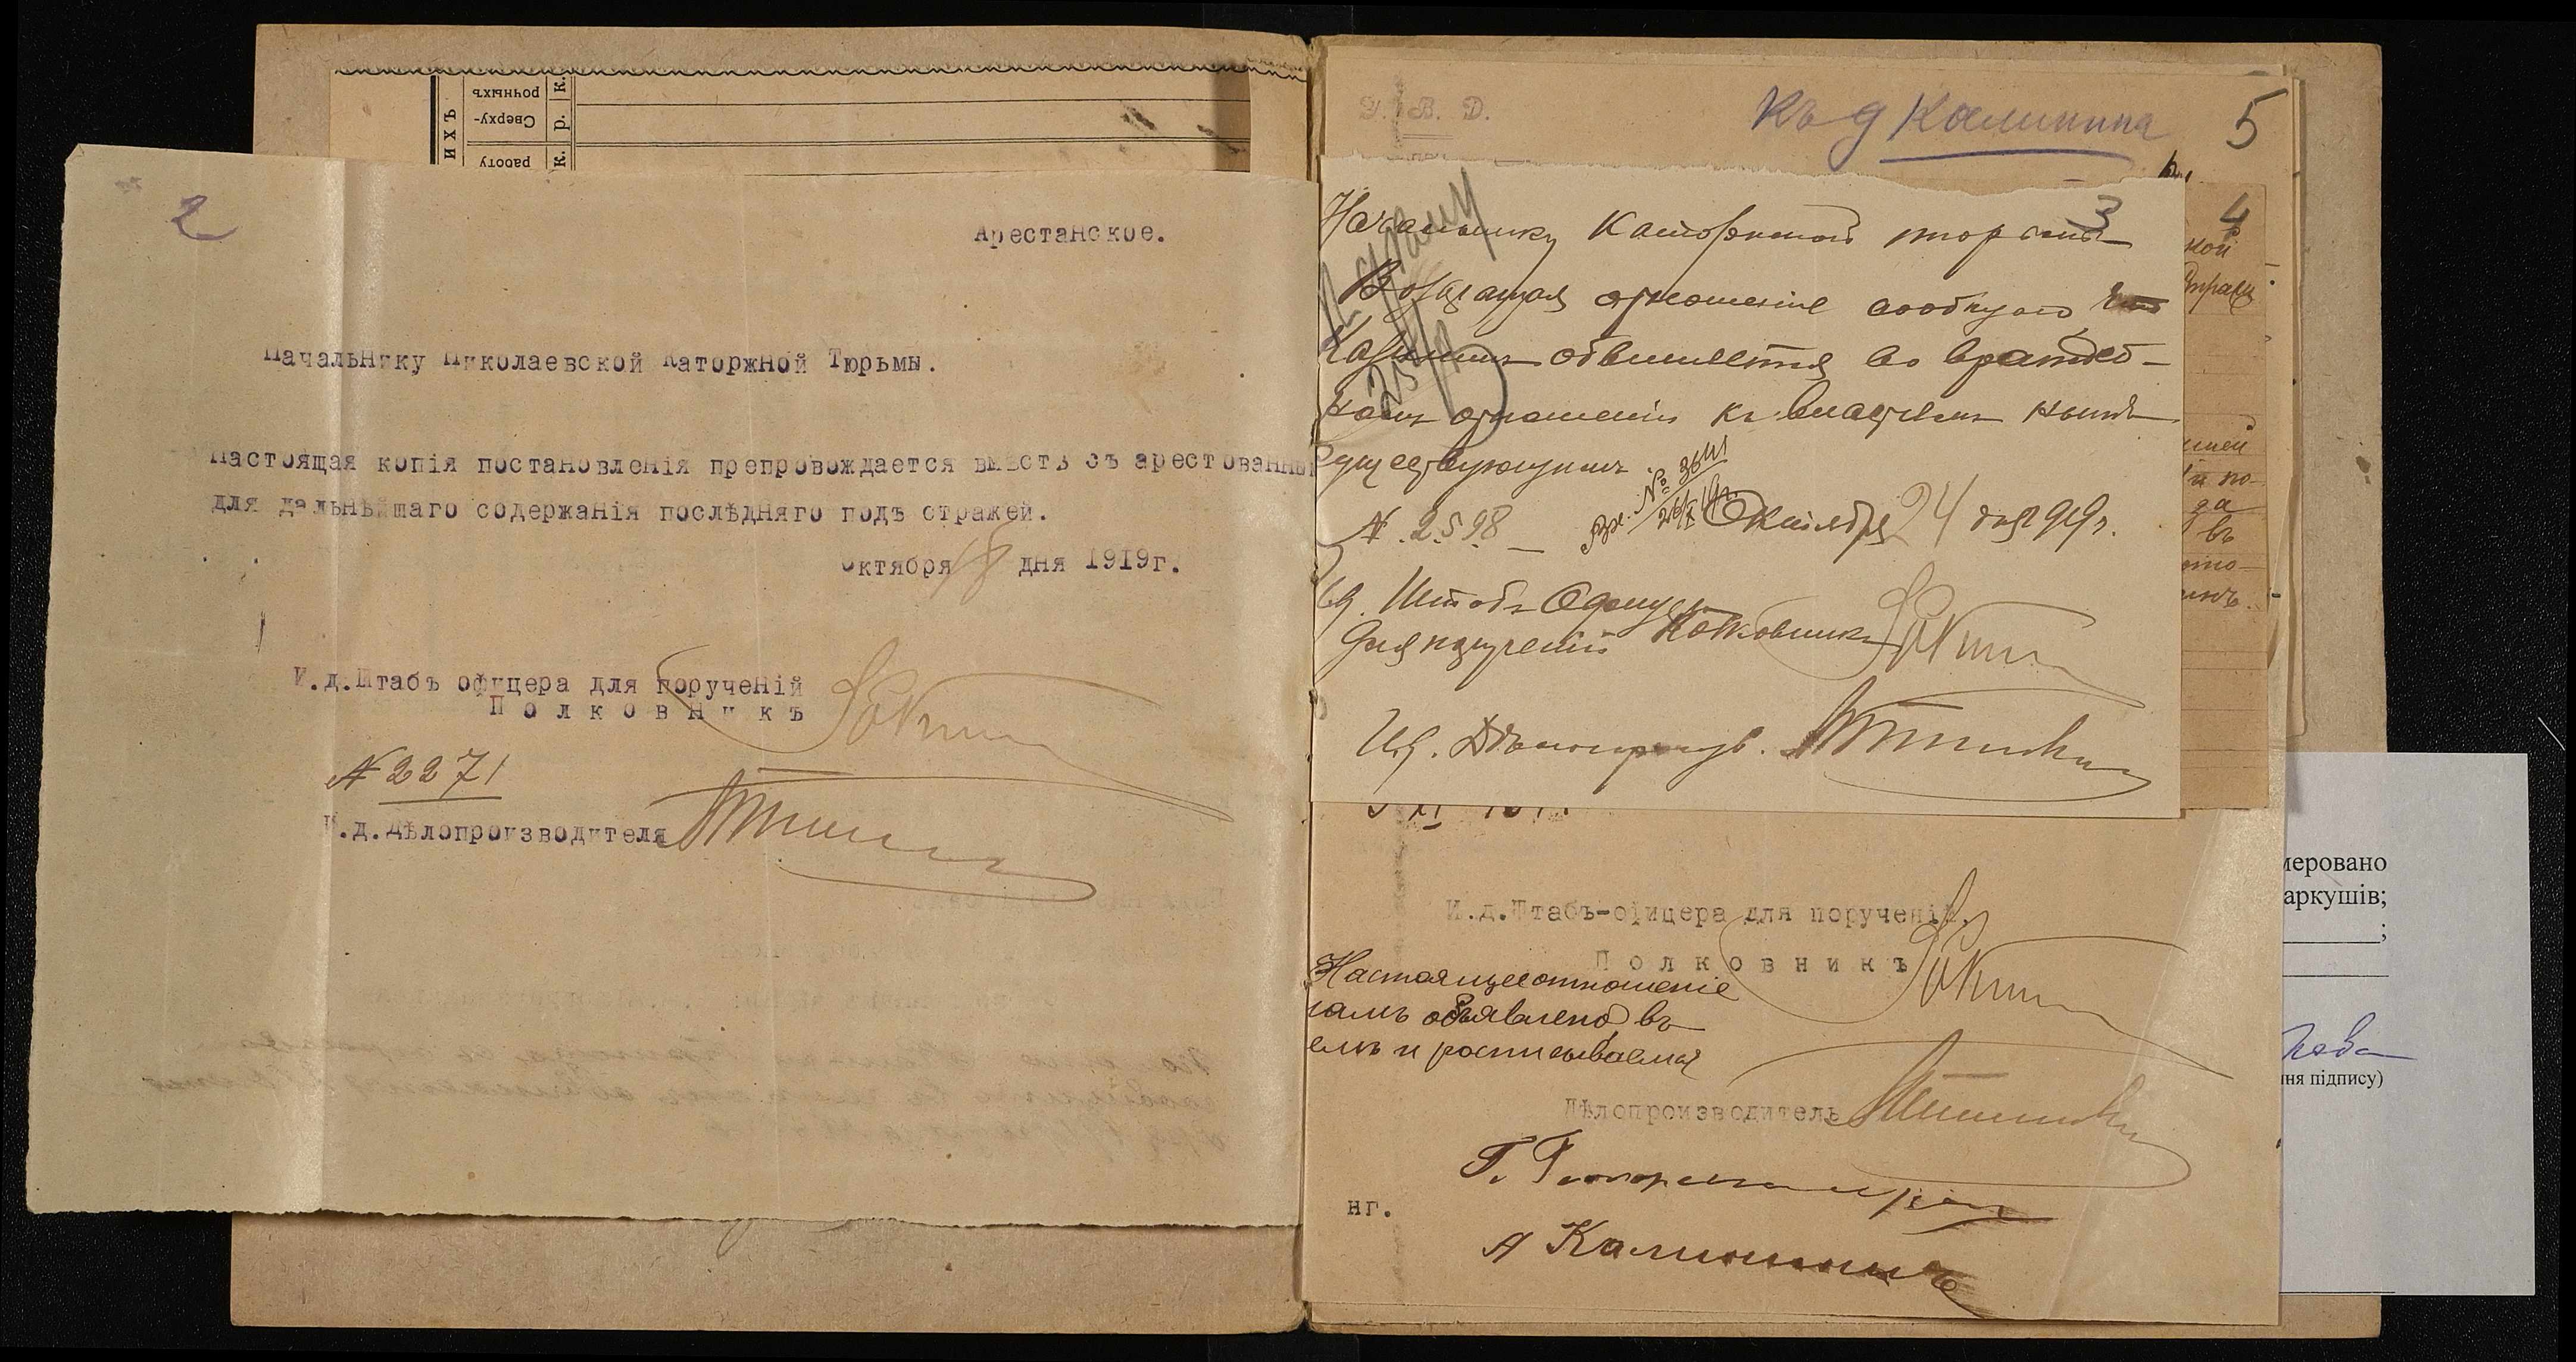 2
Арестанское.
Начальнику Николаевской Каторжной Тюрьмы.
Настоящая копія постановленія препровождается вмѣстѣ съ арестованны
для дальнѣйшаго содержанія послѣдняго подъ стражей.
Октября 18 дня 1919г.
И.д.Штабъ офицера для порученій
Полковникъ
№ 2271
И.д.Дѣлопроизводителя
ихъ
работу
Сверху-
рочныхъ
к. р. к.
У. В. Д.
Къ д Калинина
5
4
3
Начальнику Каторжной тюрьмы
Возвращая отношеніе сообщаю что
Калининъ обвиняется во враждеб-
номъ отношеніи къ властямъ нынѣ
существующимъ.
№ 2598
Вх. № 3641
26/X 19г.
Октября 24 дня 1919г.
Ид. Штабъ Офицера
для порученій Полковникъ
И.д. Дѣлопроизв.
25/X
кой
шей
и по-
да
въ
И.д.Штабъ-офицера для порученій.
Полковникъ
Настоящее отношеніе
намъ объявлено въ
емъ и росписываемся
Дѣлопроизводитель
нг.
А Калининъ
меровано
аркушів;
;
ня підпису)